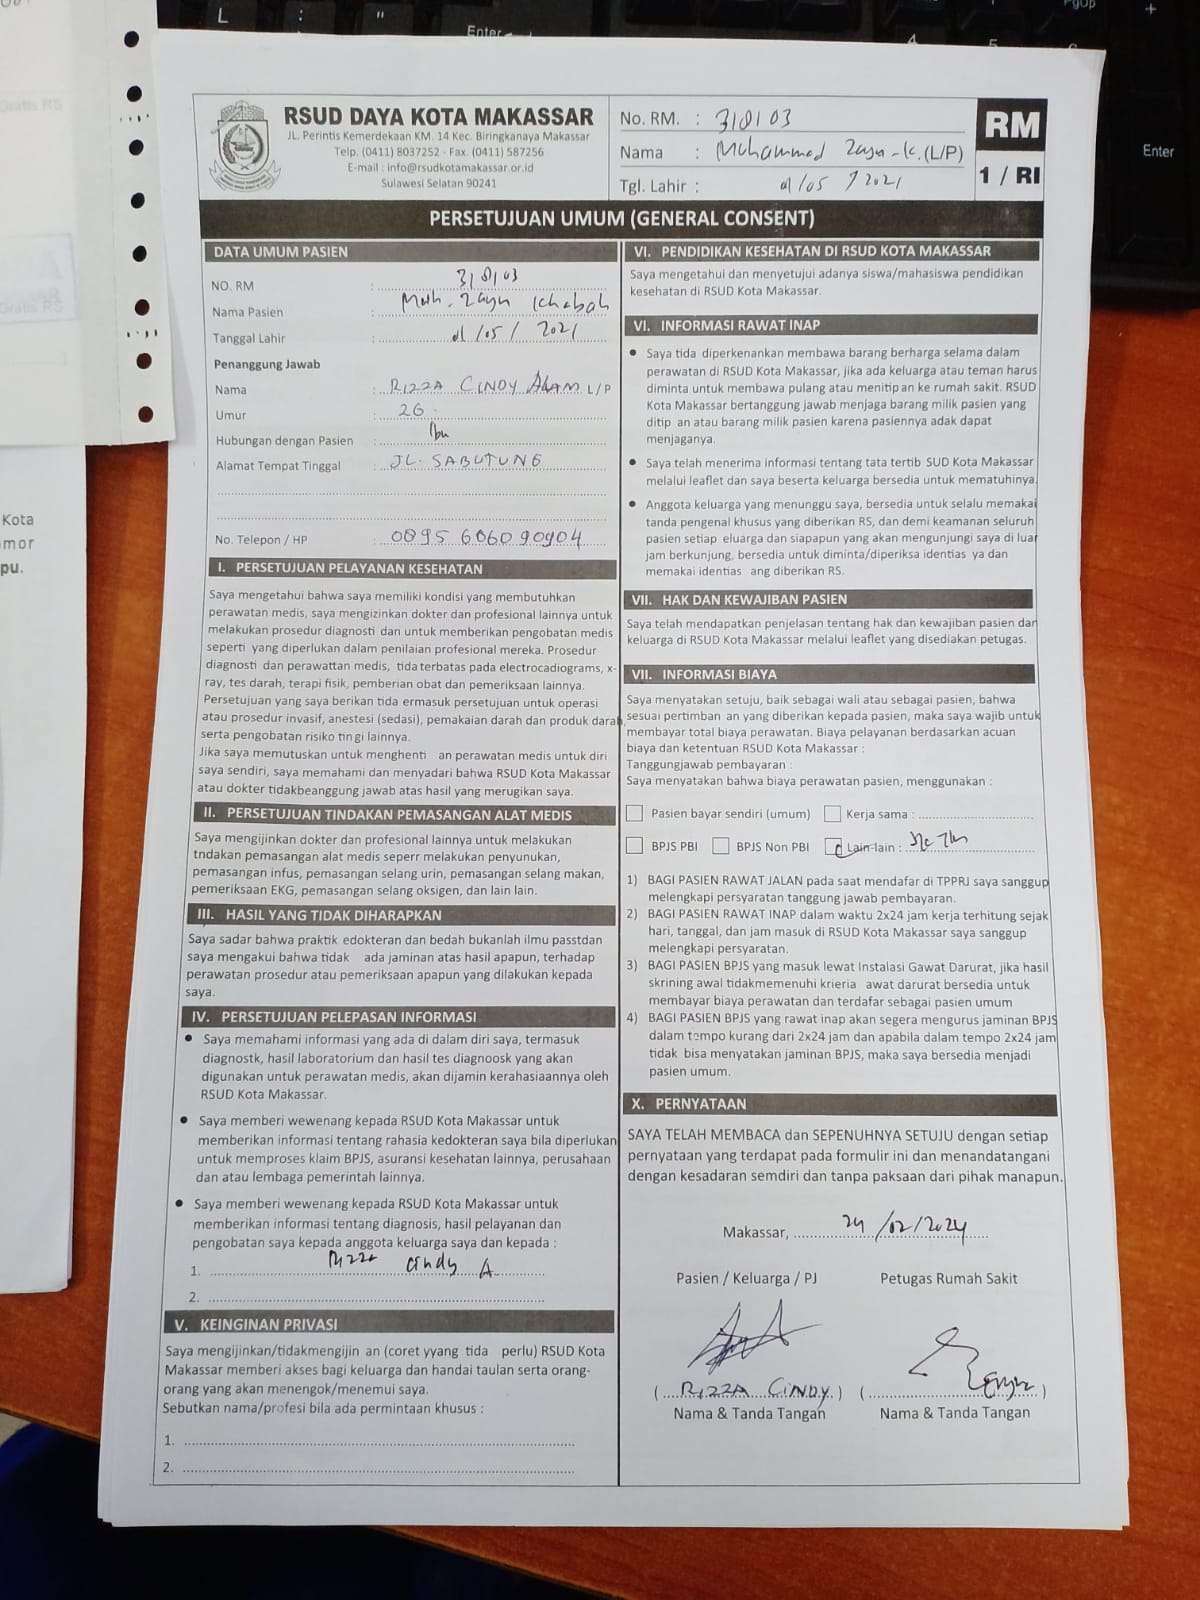 L : " Enter
PgUp +
4 5 6
Enter
Gratis RS
Gratis RS
Kota
mor
pu.
RSUD DAYA KOTA MAKASSAR
JL. Perintis Kemerdekaan KM. 14 Kec. Biringkanaya Makassar
Telp. (0411) 8037252 - Fax. (0411) 587256
E-mail : info@rsudkotamakassar.or.id
Sulawesi Selatan 90241
No. RM. : 318103
Nama : Muhammed Zayn .K. (L/P)
Tgl. Lahir : 01/05/2021
RM
1 / RI
PERSETUJUAN UMUM (GENERAL CONSENT)
DATA UMUM PASIEN
NO. RM : 318103
Nama Pasien : Muh. Zayn
Tanggal Lahir : 01/05/2021
Penanggung Jawab
Nama : RIZZA CINDY ALAM L/P
Umur : 26
Hubungan dengan Pasien : Ibu
Alamat Tempat Tinggal : JL. SABUTUNG
No. Telepon / HP : 0895 606090904
I. PERSETUJUAN PELAYANAN KESEHATAN
Saya mengetahui bahwa saya memiliki kondisi yang membutuhkan
perawatan medis, saya mengizinkan dokter dan profesional lainnya untuk
melakukan prosedur diagnosti dan untuk memberikan pengobatan medis
seperti yang diperlukan dalam penilaian profesional mereka. Prosedur
diagnosti dan perawattan medis, tida terbatas pada electrocadiograms, x-
ray, tes darah, terapi fisik, pemberian obat dan pemeriksaan lainnya.
Persetujuan yang saya berikan tida ermasuk persetujuan untuk operasi
atau prosedur invasif, anestesi (sedasi), pemakaian darah dan produk darah
serta pengobatan risiko tin gi lainnya.
Jika saya memutuskan untuk menghenti an perawatan medis untuk diri
saya sendiri, saya memahami dan menyadari bahwa RSUD Kota Makassar
atau dokter tidakbeanggung jawab atas hasil yang merugikan saya.
II. PERSETUJUAN TINDAKAN PEMASANGAN ALAT MEDIS
Saya mengijinkan dokter dan profesional lainnya untuk melakukan
tndakan pemasangan alat medis seperr melakukan penyunukan,
pemasangan infus, pemasangan selang urin, pemasangan selang makan,
pemeriksaan EKG, pemasangan selang oksigen, dan lain lain.
III. HASIL YANG TIDAK DIHARAPKAN
Saya sadar bahwa praktik edokteran dan bedah bukanlah ilmu passtdan
saya mengakui bahwa tidak ada jaminan atas hasil apapun, terhadap
perawatan prosedur atau pemeriksaan apapun yang dilakukan kepada
saya.
IV. PERSETUJUAN PELEPASAN INFORMASI
• Saya memahami informasi yang ada di dalam diri saya, termasuk
diagnostk, hasil laboratorium dan hasil tes diagnoosk yang akan
digunakan untuk perawatan medis, akan dijamin kerahasiaannya oleh
RSUD Kota Makassar.
• Saya memberi wewenang kepada RSUD Kota Makassar untuk
memberikan informasi tentang rahasia kedokteran saya bila diperlukan
untuk memproses klaim BPJS, asuransi kesehatan lainnya, perusahaan
dan atau lembaga pemerintah lainnya.
• Saya memberi wewenang kepada RSUD Kota Makassar untuk
memberikan informasi tentang diagnosis, hasil pelayanan dan
pengobatan saya kepada anggota keluarga saya dan kepada :
1. Rizza Cindy A
2.
V. KEINGINAN PRIVASI
Saya mengijinkan/tidakmengijin an (coret yyang tida perlu) RSUD Kota
Makassar memberi akses bagi keluarga dan handai taulan serta orang-
orang yang akan menengok/menemui saya.
Sebutkan nama/profesi bila ada permintaan khusus :
1.
2.
VI. PENDIDIKAN KESEHATAN DI RSUD KOTA MAKASSAR
Saya mengetahui dan menyetujui adanya siswa/mahasiswa pendidikan
kesehatan di RSUD Kota Makassar.
VI. INFORMASI RAWAT INAP
• Saya tida diperkenankan membawa barang berharga selama dalam
perawatan di RSUD Kota Makassar, jika ada keluarga atau teman harus
diminta untuk membawa pulang atau menitip an ke rumah sakit. RSUD
Kota Makassar bertanggung jawab menjaga barang milik pasien yang
ditip an atau barang milik pasien karena pasiennya adak dapat
menjaganya.
• Saya telah menerima informasi tentang tata tertib SUD Kota Makassar
melalui leaflet dan saya beserta keluarga bersedia untuk mematuhinya.
• Anggota keluarga yang menunggu saya, bersedia untuk selalu memakai
tanda pengenal khusus yang diberikan RS, dan demi keamanan seluruh
pasien setiap eluarga dan siapapun yang akan mengunjungi saya di luar
jam berkunjung, bersedia untuk diminta/diperiksa identias ya dan
memakai identias ang diberikan RS.
VII. HAK DAN KEWAJIBAN PASIEN
Saya telah mendapatkan penjelasan tentang hak dan kewajiban pasien dan
keluarga di RSUD Kota Makassar melalui leaflet yang disediakan petugas.
VII. INFORMASI BIAYA
Saya menyatakan setuju, baik sebagai wali atau sebagai pasien, bahwa
sesuai pertimban an yang diberikan kepada pasien, maka saya wajib untuk
membayar total biaya perawatan. Biaya pelayanan berdasarkan acuan
biaya dan ketentuan RSUD Kota Makassar :
Tanggungjawab pembayaran :
Saya menyatakan bahwa biaya perawatan pasien, menggunakan :
Pasien bayar sendiri (umum) Kerja sama :
BPJS PBI BPJS Non PBI Lain-lain :
1) BAGI PASIEN RAWAT JALAN pada saat mendafar di TPPRJ saya sanggup
melengkapi persyaratan tanggung jawab pembayaran.
2) BAGI PASIEN RAWAT INAP dalam waktu 2x24 jam kerja terhitung sejak
hari, tanggal, dan jam masuk di RSUD Kota Makassar saya sanggup
melengkapi persyaratan.
3) BAGI PASIEN BPJS yang masuk lewat Instalasi Gawat Darurat, jika hasil
skrining awal tidakmemenuhi krieria awat darurat bersedia untuk
membayar biaya perawatan dan terdafar sebagai pasien umum
4) BAGI PASIEN BPJS yang rawat inap akan segera mengurus jaminan BPJS
dalam tempo kurang dari 2x24 jam dan apabila dalam tempo 2x24 jam
tidak bisa menyatakan jaminan BPJS, maka saya bersedia menjadi
pasien umum.
X. PERNYATAAN
SAYA TELAH MEMBACA dan SEPENUHNYA SETUJU dengan setiap
pernyataan yang terdapat pada formulir ini dan menandatangani
dengan kesadaran semdiri dan tanpa paksaan dari pihak manapun.
Makassar, 24/02/2024
Pasien / Keluarga / PJ Petugas Rumah Sakit
( RIZZA CINDY ) ( )
Nama & Tanda Tangan Nama & Tanda Tangan